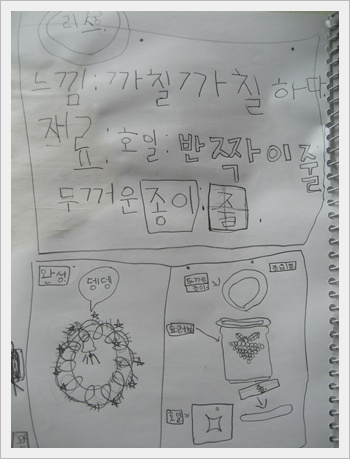 리스
느낌: 까칠까칠 하다.
재료: 호일: 반짝이줄
두꺼운 종이: 줄.
완성
뎅뎅
두꺼운
종이
줄
호일